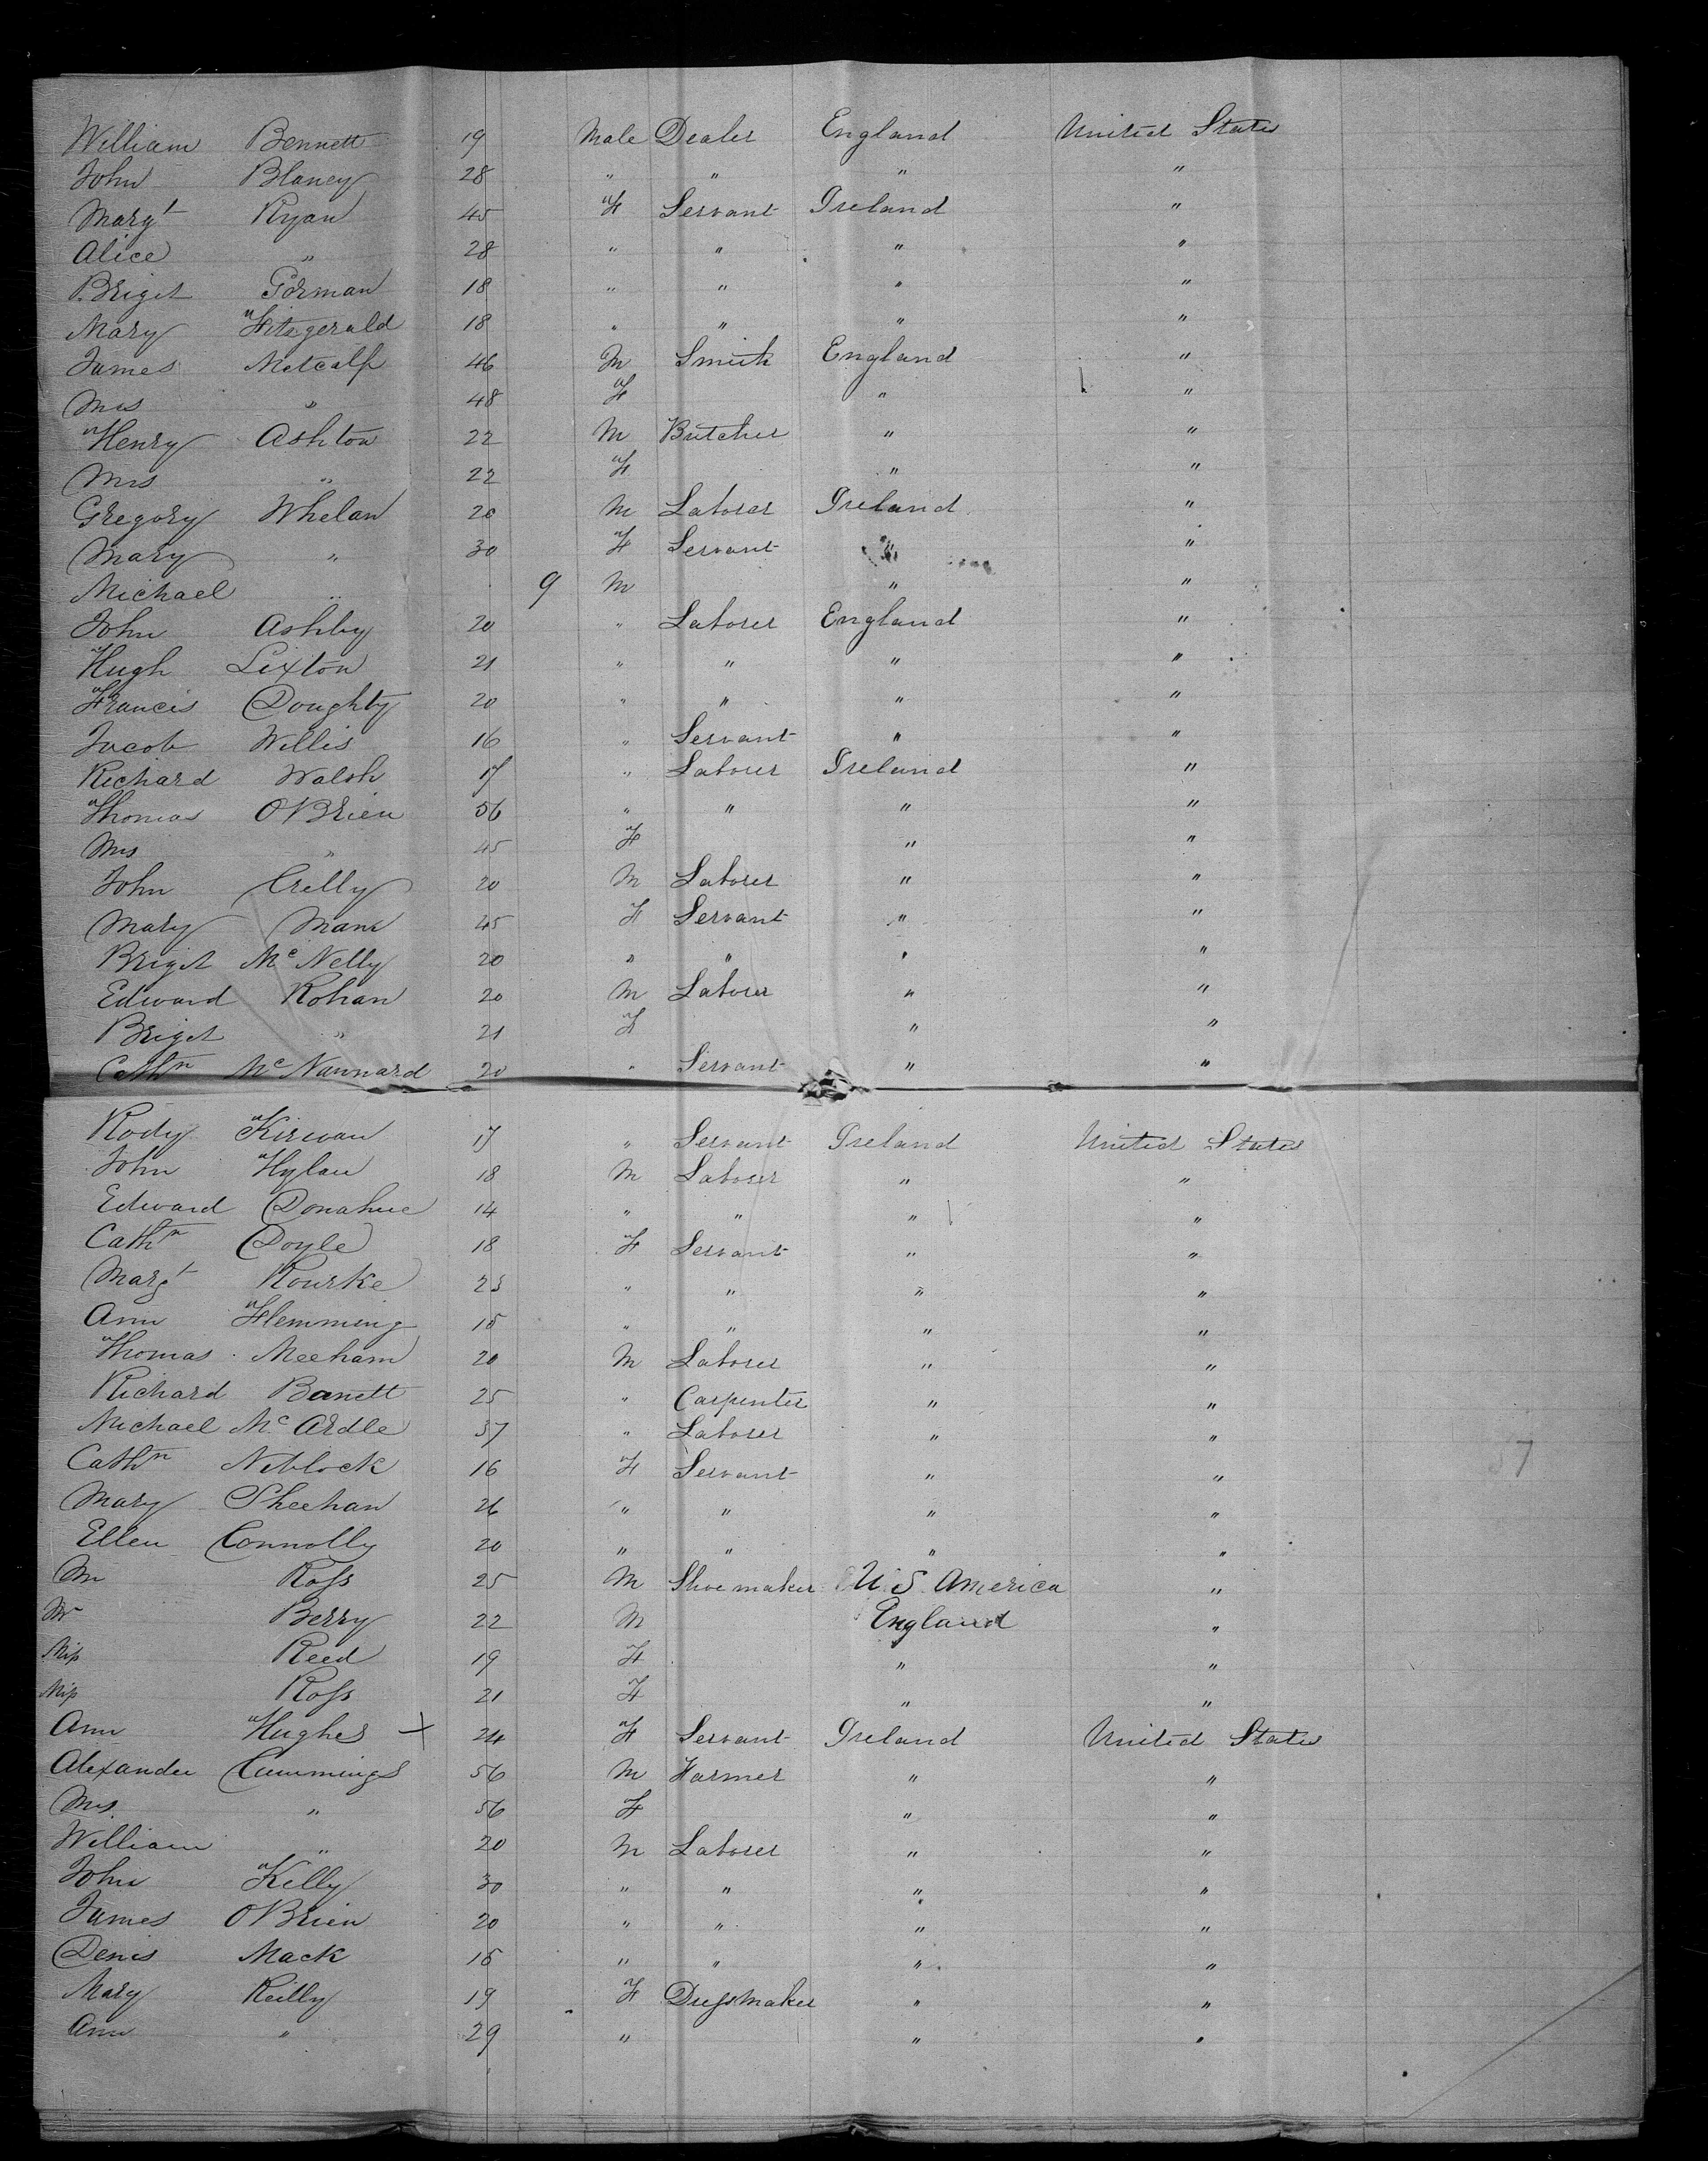 William Bennett 19 Male Dealer England United States
John Blaney 28 " " " "
Margt Ryan 45 F Servant Ireland "
Alice " 28 " " " "
Briget Gorman 18 " " " "
Mary Fitzgerald 18 " " " "
James Metcalf 46 M Smith England "
Mrs " 48 F " "
Henry Ashton 22 M Butcher " "
Mrs " 22 F " "
Gregory Whelan 20 M Laborer Ireland "
Mary " 30 F Servant " "
Michael " 9 M " "
John Ashby 20 " Laborer England "
Hugh Lixton 21 " " " "
Francis Doughty 20 " " " "
Jacob Willis 16 " Servant " "
Richard Walsh 17 " Laborer Ireland "
Thomas OBrien 56 " " " "
Mrs " 45 F " "
John Crelly 20 M Laborer " "
Mary 45 F Servant " "
Briget McNelly 20 " " " "
Edward Rohan 20 M Laborer " "
Briget " 21 F " "
Cathn McNannard 20 " Servant " "
Rody Kirwan 17 " Servant Ireland United States
John Hylan 18 M Laborer " "
Edward Donahue 14 " " " "
Cathn Doyle 18 F Servant " "
Margt Rourke 23 " " " "
Ann Flemming 18 " " " "
Thomas Meeham 20 M Laborer " "
Richard Barrett 25 " Carpenter " "
Michael McArdle 37 " Laborer " "
Cathn Niblock 16 F Servant " "
Mary Sheehan 26 " " " "
Ellen Connolly 20 " " " "
Mr Ross 25 M Shoemaker U.S. America "
Mr Berry 22 M England "
Miss Reed 19 F " "
Miss Ross 21 F " "
Ann Hughes X 24 F Servant Ireland United States
Alexander Cummings 56 M Farmer " "
Mrs. " 56 F " "
William " 20 M Laborer " "
John Kelly 30 " " " "
James OBrien 20 " " " "
Denis Mack 18 " " " "
Mary Reilly 19 F Dressmaker " "
Ann " 29 " " "